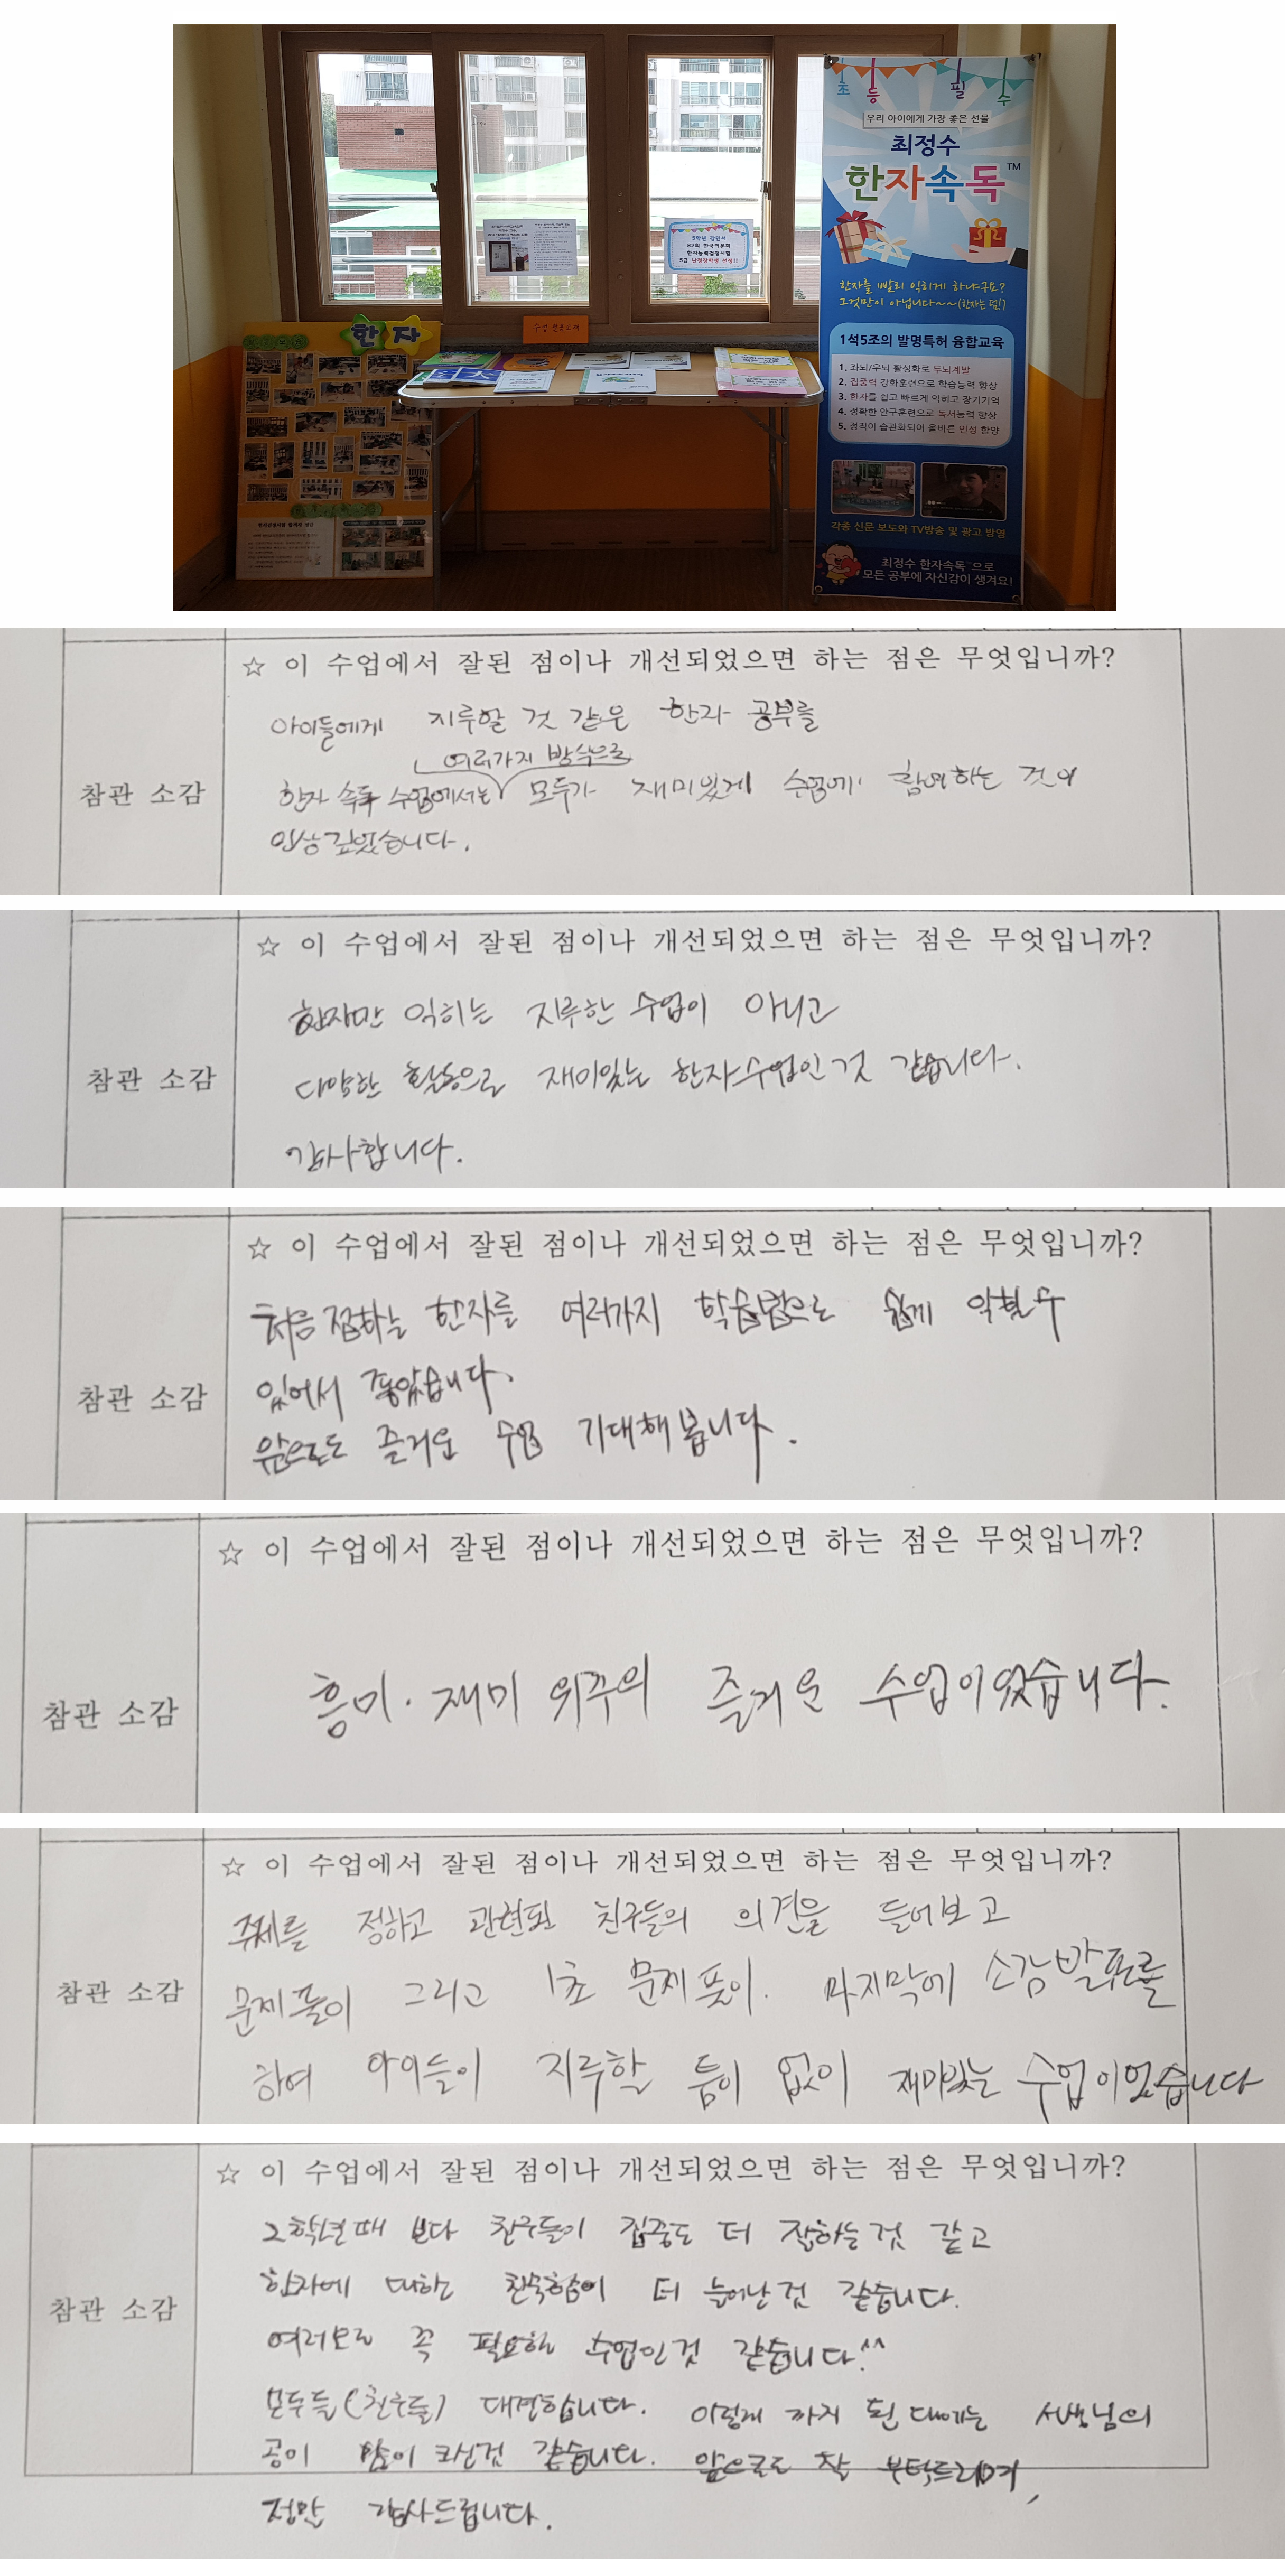 초등필수
우리 아이에게 가장 좋은 선물
최정수
한자속독™
한자를 빨리 익히게 하냐구요?
그것만이 아닙니다~~(한자는 덤!)
1석5조의 발명특허 융합교육
1. 좌뇌/우뇌 활성화로 두뇌계발
2. 집중력 강화훈련으로 학습능력 향상
3. 한자를 쉽고 빠르게 익히고 장기기억
4. 정확한 안구훈련으로 독서능력 향상
5. 정직이 습관화되어 올바른 인성 함양
각종 신문 보도와 TV방송 및 광고 방영
최정수 한자속독™으로
모든 공부에 자신감이 생겨요!
82회 한국어문회
한자능력검정시험
5급
한자
참관 소감
☆ 이 수업에서 잘된 점이나 개선되었으면 하는 점은 무엇입니까?
아이들에게 지루할 것 같은 한자 공부를
여러가지 방식으로
한자 속독 수업에서는 모두가 재미있게 수업에 참여하는 것이
인상깊었습니다.
참관 소감
☆ 이 수업에서 잘된 점이나 개선되었으면 하는 점은 무엇입니까?
한자만 익히는 지루한 수업이 아니고
다양한 활동으로 재미있는 한자수업인것 같습니다.
감사합니다.
참관 소감
☆ 이 수업에서 잘된 점이나 개선되었으면 하는 점은 무엇입니까?
처음 접하는 한자를 여러가지 학습법으로 쉽게 익힐수
있어서 좋았습니다.
앞으로도 즐거운 수업 기대해봅니다.
참관 소감
☆ 이 수업에서 잘된 점이나 개선되었으면 하는 점은 무엇입니까?
흥미·재미 위주의 즐거운 수업이었습니다.
참관 소감
☆ 이 수업에서 잘된 점이나 개선되었으면 하는 점은 무엇입니까?
주제를 정하고 관련된 친구들의 의견을 들어보고
문제풀이 그리고 1초 문제풀이. 마지막에 소감발표를
하여 아이들이 지루할 틈이 없이 재미있는 수업이었습니다
참관 소감
☆ 이 수업에서 잘된 점이나 개선되었으면 하는 점은 무엇입니까?
2학년때 보다 친구들이 집중도 더 잘하는것 같고
한자에 대한 친숙함이 더 늘어난것 같습니다.
여러모로 꼭 필요한 수업인것 같습니다!^^
모두들(친구들) 대견합니다. 이렇게 까지 된 데에는 선생님의
공이 많이 크신것 같습니다. 앞으로도 잘 부탁드리며,
정말 감사드립니다.